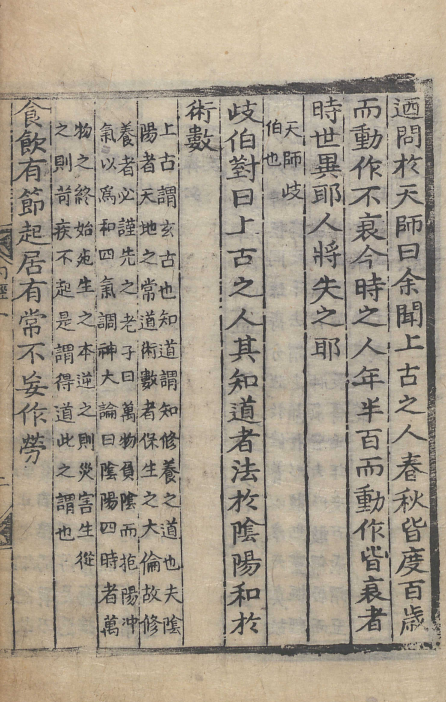 迺問於天師曰余聞上古之人春秋皆度百歲
而動作不衰今時之人年半百而動作皆衰者
時世異耶人將失之耶
天師歧
伯也
歧伯對曰上古之人其知道者法於陰陽和於
術數
上古謂玄古也知道謂知修養之道也夫陰
陽者天地之常道術數者保生之大倫故修
養者必謹先之老子曰萬物負陰而抱陽冲
氣以爲和四氣調神大論曰陰陽四時者萬
物之終始死生之本逆之則災害生從
之則苛疾不起是謂得道此之謂也
食飲有節起居有常不妄作勞